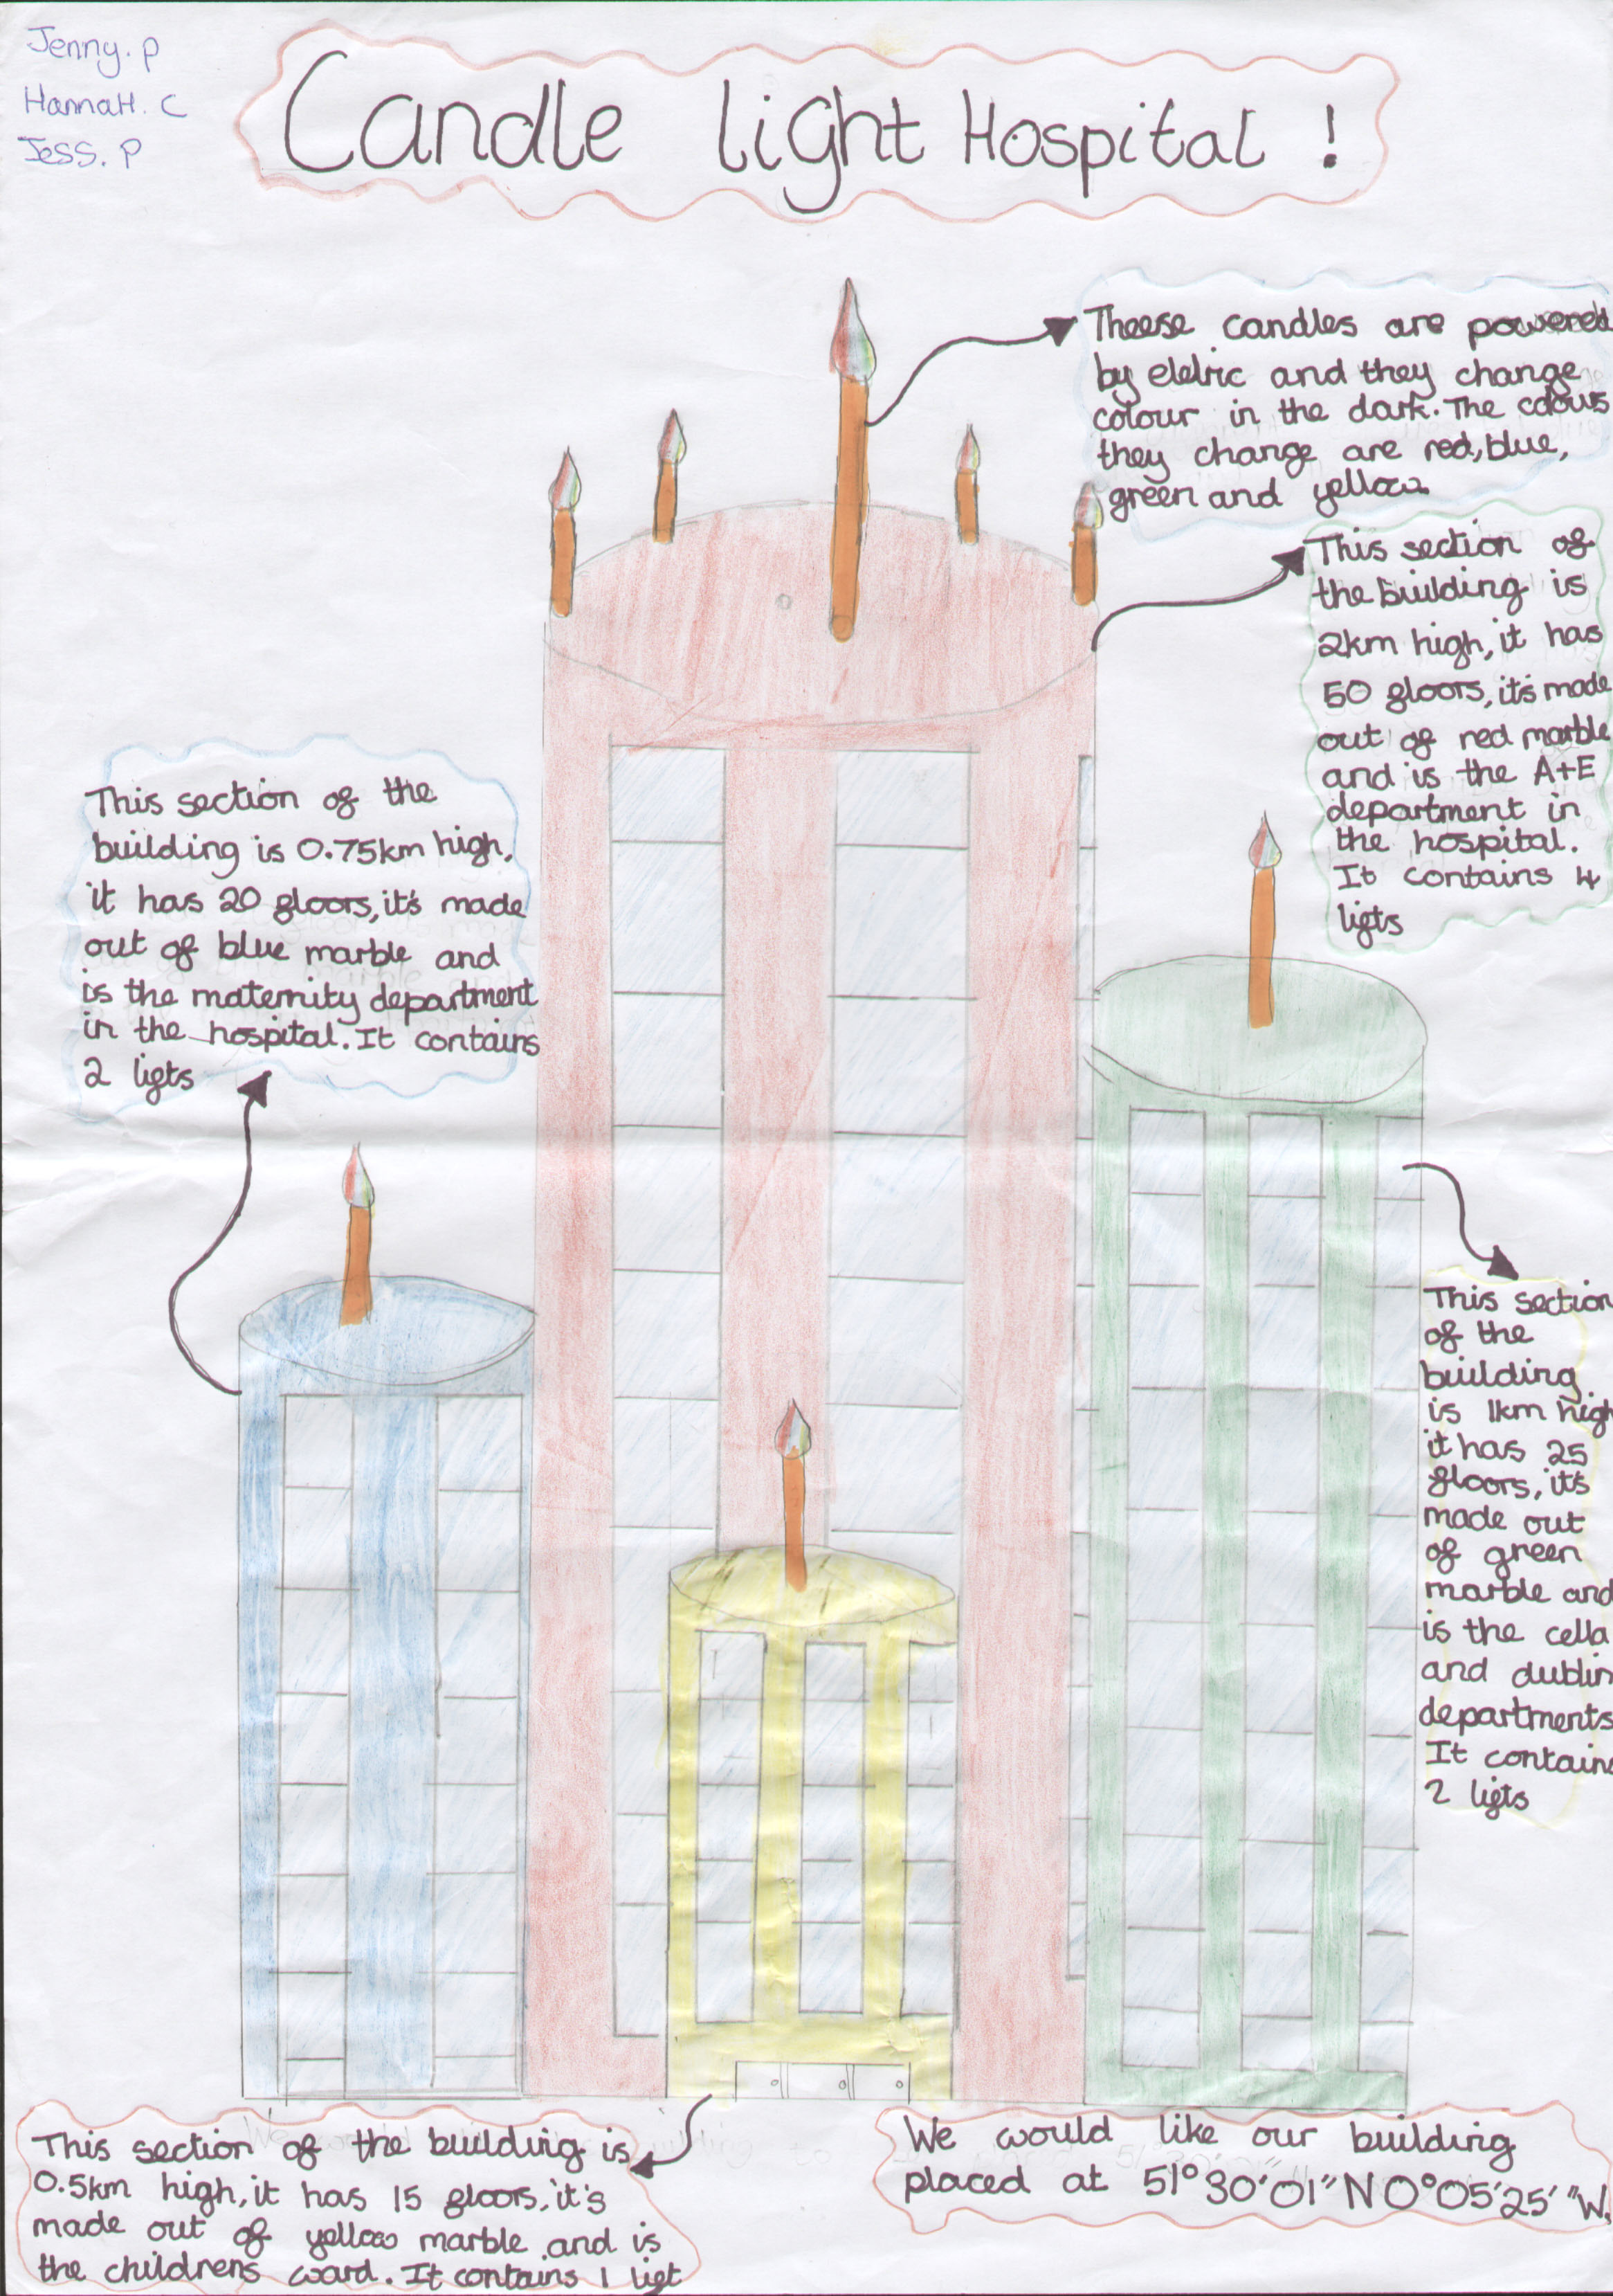 Jenny. P
HannaH. C
Jess. P
Candle light Hospital !
Theese candles are powered
by eleltric and they change
colour in the dark. The colours
they change are red, blue,
green and yellow.
This section of
the building is
2km high, it has
50 floors, it's made
out of red marble
and is the A+E
department in
the hospital.
It contains 4
lifts
This section of the
building is 0.75km high,
it has 20 floors, it's made
out of blue marble and
is the maternity department
in the hospital. It contains
2 lifts
This section
of the
building
is 1km high
it has 25
floors, it's
made out
of green
marble and
is the cella
and dublin
departments
It contains
2 lifts
This section of the building is
0.5km high, it has 15 floors, it's
made out of yellow marble and is
the childrens ward. It contains 1 lift
We would like our building
placed at 51°30'01"N 0°05'25'"W.